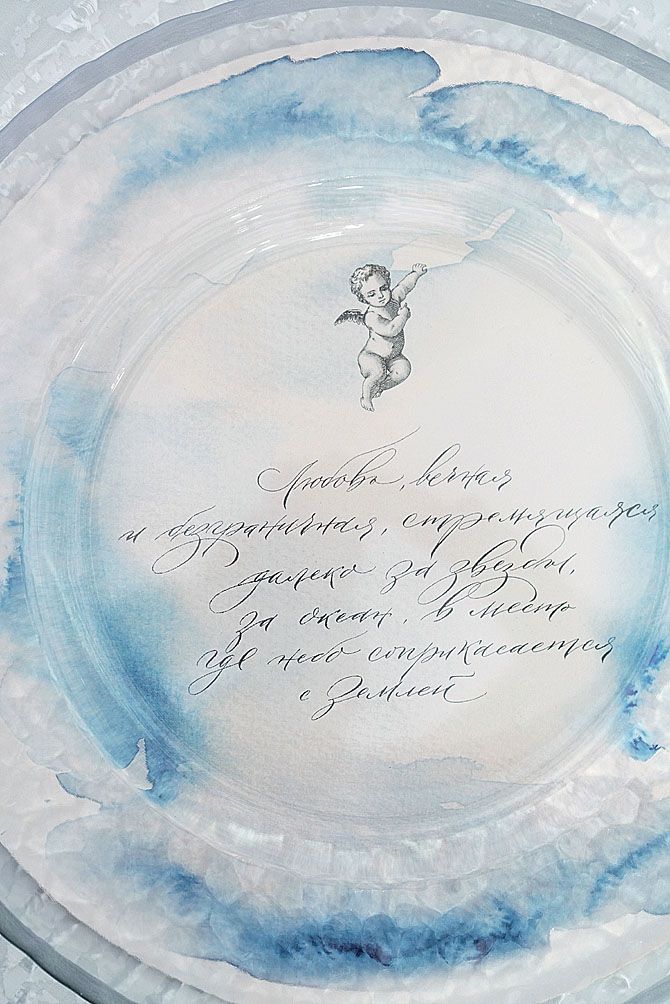 Любовь, вечная
и безграничная, стремящаяся
далеко за звезды,
за океан, в место
где небо соприкасается
с Землей